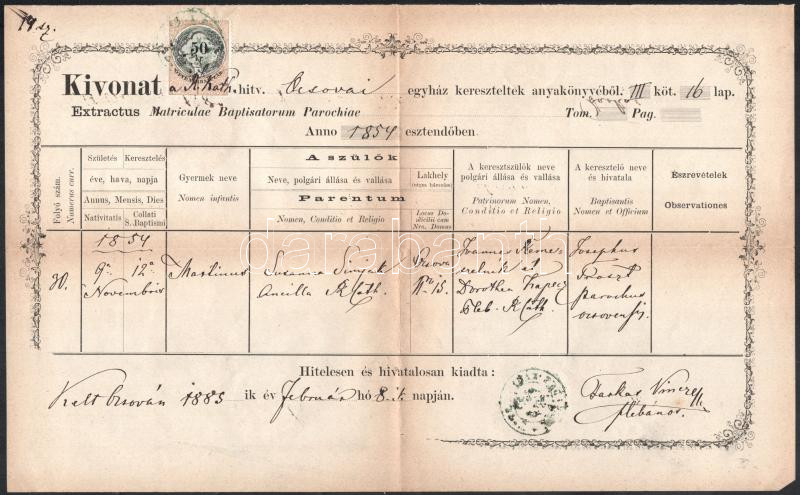 19 sz.
50
Kivonat a R. kath. hitv. Ocsovai egyház kereszteltek anyakönyvéből. III köt. 16 lap.
Extractus Matriculae Baptisatorum Parochiae Tom. Pag.
Anno 1854 esztendőben.
Folyó szám.
Numerus curr.
Születés Keresztelés
éve, hava, napja
Annus, Mensis, Dies
Nativitatis Collati S. Baptismi
Gyermek neve
Nomen infantis
A szülők
Neve, polgári állása és vallása
Parentum
Nomen, Conditio et Religio
Lakhely
Locus Domicilii cum Nro. Domus
A keresztszülők neve
polgári állása és vallása
Patrinorum Nomen,
Conditio et Religio
A keresztelő neve
és hivatala
Baptisantis
Nomen et Officium
Észrevételek
Observationes
1854
30. 9a 12a
Novembris
Martinus
Susanna Simják
Ancilla R. Cath.
Ocsova
Nr. 15.
Joannes
et
Dorothea
Pleb. R. Cath.
Josephus
Proszt
parochus
ocsovensis.
darabanth
Hitelesen és hivatalosan kiadta:
Kelt Ocsován 1883 ik év február hó 8. ik napján.
Farkas Vincze
plébános.